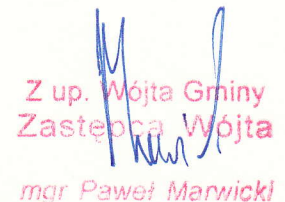 Z up. Wójta Gminy
Zastępca Wójta
mgr Paweł Marwicki